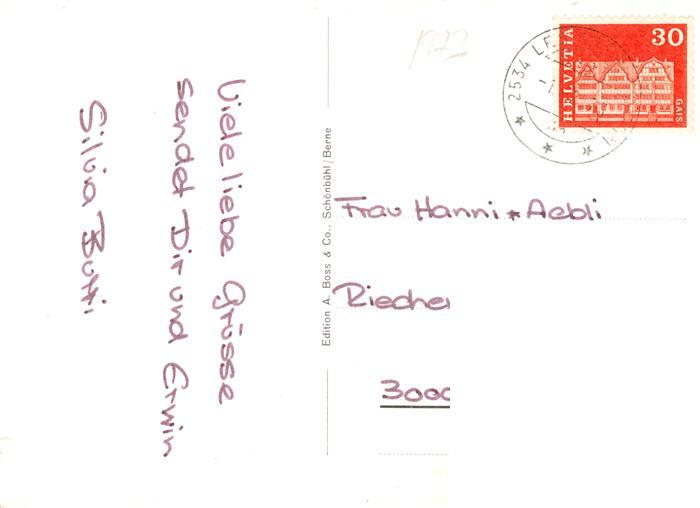 Viele liebe Grüsse
sendet Dir und Erwin
Silvia Butti
Edition A. Boss & Co., Schönbühl/Berne
1973
HELVETIA
30
GAIS
2534
Frau Hanni Aebli
3000